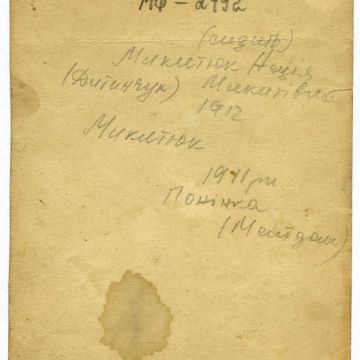 МФ - 2992
(сидить)
Миклтюк Надія
(Дитинчук) Микитівна
1912
Миклтюк
1941 рік
Понінка
(Майдан)